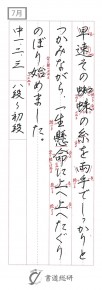 7月
早速その蜘蛛の糸を両手でしっかりと
つかみながら、一生懸命に上へ上へとたぐり
のぼり始めました。
中一・二・三　八段〜初段
書道総研